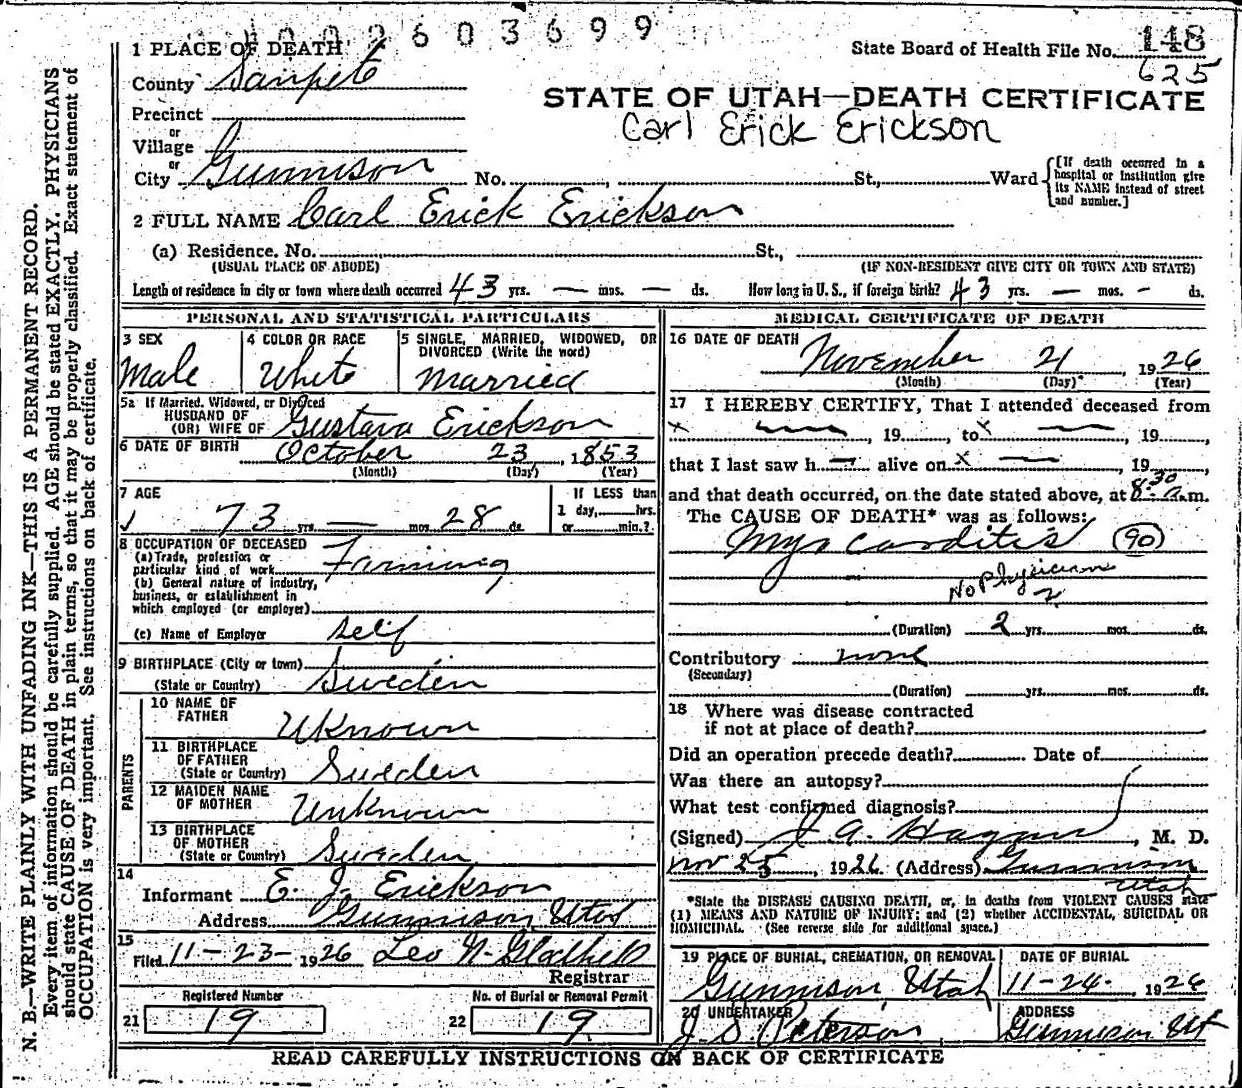 0 0 2 6 0 3 6 9 9
1 PLACE OF DEATH
State Board of Health File No. 118
625
County Sanpete
STATE OF UTAH—DEATH CERTIFICATE
Carl Erick Erickson
Precinct
or
Village
or
City Gunnison No. , St., Ward
[If death occurred in a
hospital or institution give
its NAME instead of street
and number.]
2 FULL NAME Carl Erick Erickson
(a) Residence. No. St.,
(USUAL PLACE OF ABODE) (IF NON-RESIDENT GIVE CITY OR TOWN AND STATE)
Length of residence in city or town where death occurred 43 yrs. — mos. — ds. How long in U. S., if foreign birth? 43 yrs. — mos. - ds.
PERSONAL AND STATISTICAL PARTICULARS
3 SEX
Male
4 COLOR OR RACE
White
5 SINGLE, MARRIED, WIDOWED, OR
DIVORCED (Write the word)
Married
5a If Married, Widowed, or Divorced
HUSBAND OF
(OR) WIFE OF Gustava Erickson
6 DATE OF BIRTH October 23, 1853
(Month) (Day) (Year)
7 AGE
73 yrs. — mos. 28 ds.
If LESS than
1 day, hrs.
or min.?
8 OCCUPATION OF DECEASED
(a) Trade, profession or
particular kind of work Farming
(b) General nature of industry,
business, or establishment in
which employed (or employer)
(c) Name of Employer Self
9 BIRTHPLACE (City or town)
(State or Country) Sweden
PARENTS
10 NAME OF
FATHER Uknown
11 BIRTHPLACE
OF FATHER
(State or Country) Sweden
12 MAIDEN NAME
OF MOTHER Unknown
13 BIRTHPLACE
OF MOTHER
(State or Country) Sweden
14
Informant E. J. Erickson
Address Gunnison, Utah
15
Filed 11-23- 1926 Leo N. Gledhill
Registrar
Registered Number
21 19
No. of Burial or Removal Permit
22 19
MEDICAL CERTIFICATE OF DEATH
16 DATE OF DEATH
November 21 1926
(Month) (Day) (Year)
17 I HEREBY CERTIFY, That I attended deceased from
x — , 19 , to x — , 19 ,
that I last saw h — alive on x — , 19 ,
and that death occurred, on the date stated above, at 8:30 a.m.
The CAUSE OF DEATH* was as follows:
Myocarditis (90)
No Physician
2
(Duration) 2 yrs. mos. ds.
Contributory none
(Secondary)
(Duration) yrs. mos. ds.
18 Where was disease contracted
if not at place of death?
Did an operation precede death? Date of
Was there an autopsy?
What test confirmed diagnosis?
(Signed) J. A. Hagan, M. D.
Nov 25, 1926 (Address) Gunnison
Utah
*State the DISEASE CAUSING DEATH, or, in deaths from VIOLENT CAUSES state
(1) MEANS AND NATURE OF INJURY; and (2) whether ACCIDENTAL, SUICIDAL OR
HOMICIDAL. (See reverse side for additional space.)
19 PLACE OF BURIAL, CREMATION, OR REMOVAL
Gunnison, Utah
DATE OF BURIAL
11-24- 1926
20 UNDERTAKER
J. S. Peterson
ADDRESS
Gunnison Ut
READ CAREFULLY INSTRUCTIONS ON BACK OF CERTIFICATE
N. B.—WRITE PLAINLY WITH UNFADING INK—THIS IS A PERMANENT RECORD.
Every item of information should be carefully supplied. AGE should be stated EXACTLY. PHYSICIANS
should state CAUSE OF DEATH in plain terms, so that it may be properly classified. Exact statement of
OCCUPATION is very important. See instructions on back of certificate.